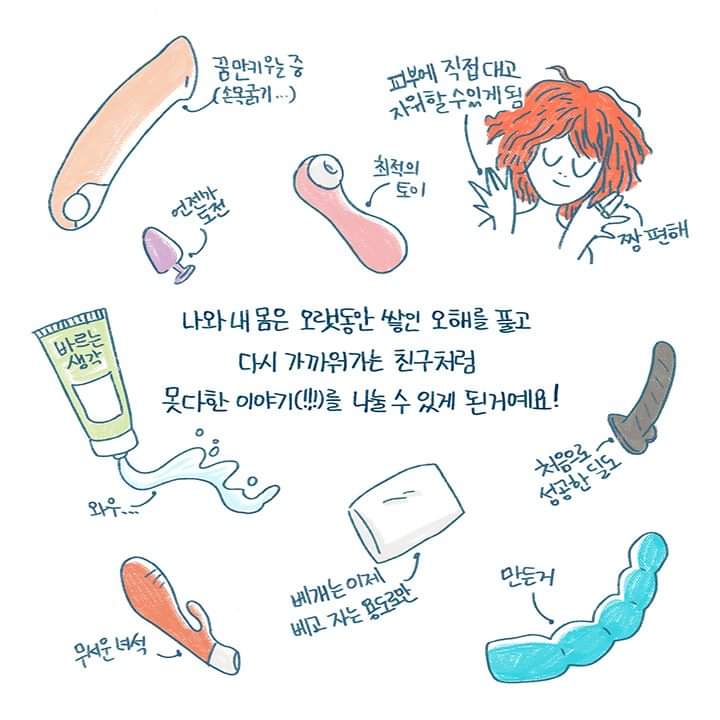 꿈만키우는 중
(손목굵기...)
피부에 직접 대고
자위할 수 있게 됨
최적의
토이
언젠가
도전
짱 편해
나와 내 몸은 오랫동안 쌓인 오해를 풀고
다시 가까워가는 친구처럼
못다한 이야기(!!!)를 나눌 수 있게 된거예요!
바르는
생각
와우...
처음으로
성공한 딜도
베개는 이제
베고 자는 용도로만
만든거
무서운 녀석